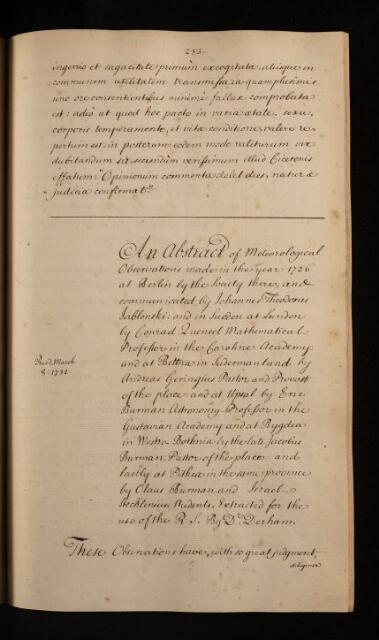 253.
ingenio et sagacitate primùm excogitata, aliisque in
communem utilitatem transmissa, a quam plurimis,
uno ore consentientibus minimè fallax comprobata
est: adeò ut quod hoc pacto in varia ætate, sexu,
corporis temperamento, et vitæ conditione, valere re-
pertum est, in posterum eodem modo valiturum vix
dubitandum sit secundùm verissimum illud Ciceronis
effatum: Opinionum commenta delet dies, naturæ
judicia confirmat.
An Abstract of Meteorological
Observations made in the year 1726
at Berlin by the Society there, and
communicated by Johannes Theodorus
Jablonski: and in Sweden at Lunden
by Conrad Quensel Mathematical
Professor in the Caroline Academy:
and at Bettna in Sudermanland by
Andreas Geringius Pastor and Provost
of the place and at Upsal by Eric
Burman Astronomy Professor in the
Gustavian Academy and at Bygdea
in Westro-Bothnia by the late Jacobus
Burman, Pastor of the place; and
lastly at Pithea in the same province
by Olaus Burman and Israel
Stecklenius, Students. Extracted for the
use of the R. S. By Dr. Derham.
Read March
8. 1732
These Observations have, with so great judgment,
diligence